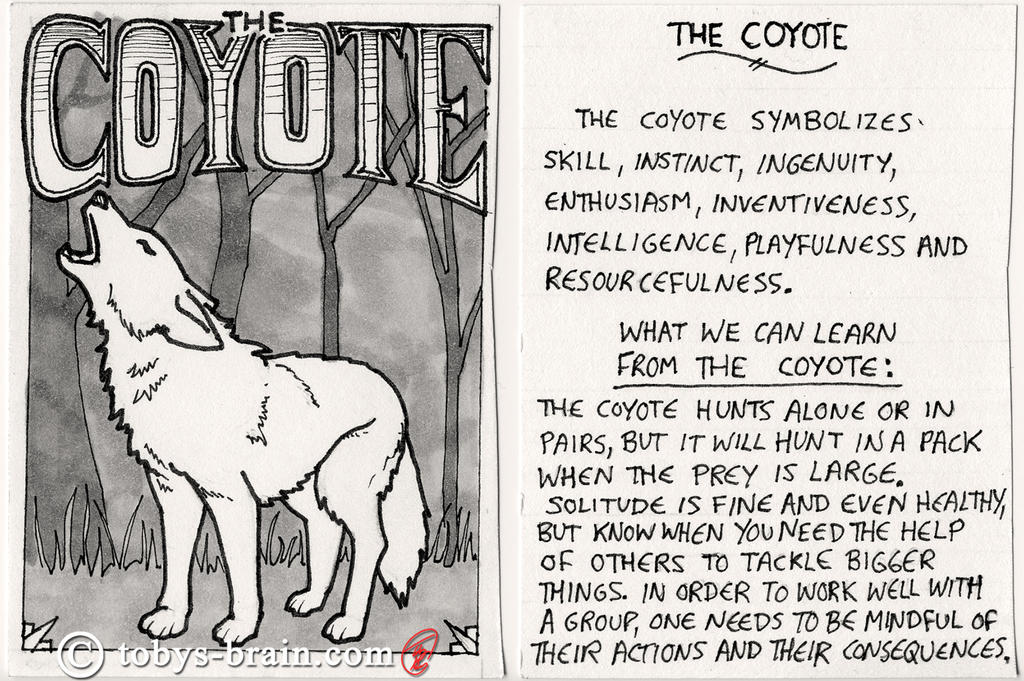 THE
COYOTE
© tobys-brain.com
THE COYOTE
THE COYOTE SYMBOLIZES
SKILL, INSTINCT, INGENUITY,
ENTHUSIASM, INVENTIVENESS,
INTELLIGENCE, PLAYFULNESS AND
RESOURCEFULNESS.
WHAT WE CAN LEARN
FROM THE COYOTE:
THE COYOTE HUNTS ALONE OR IN
PAIRS, BUT IT WILL HUNT IN A PACK
WHEN THE PREY IS LARGE.
SOLITUDE IS FINE AND EVEN HEALTHY,
BUT KNOW WHEN YOU NEED THE HELP
OF OTHERS TO TACKLE BIGGER
THINGS. IN ORDER TO WORK WELL WITH
A GROUP, ONE NEEDS TO BE MINDFUL OF
THEIR ACTIONS AND THEIR CONSEQUENCES.